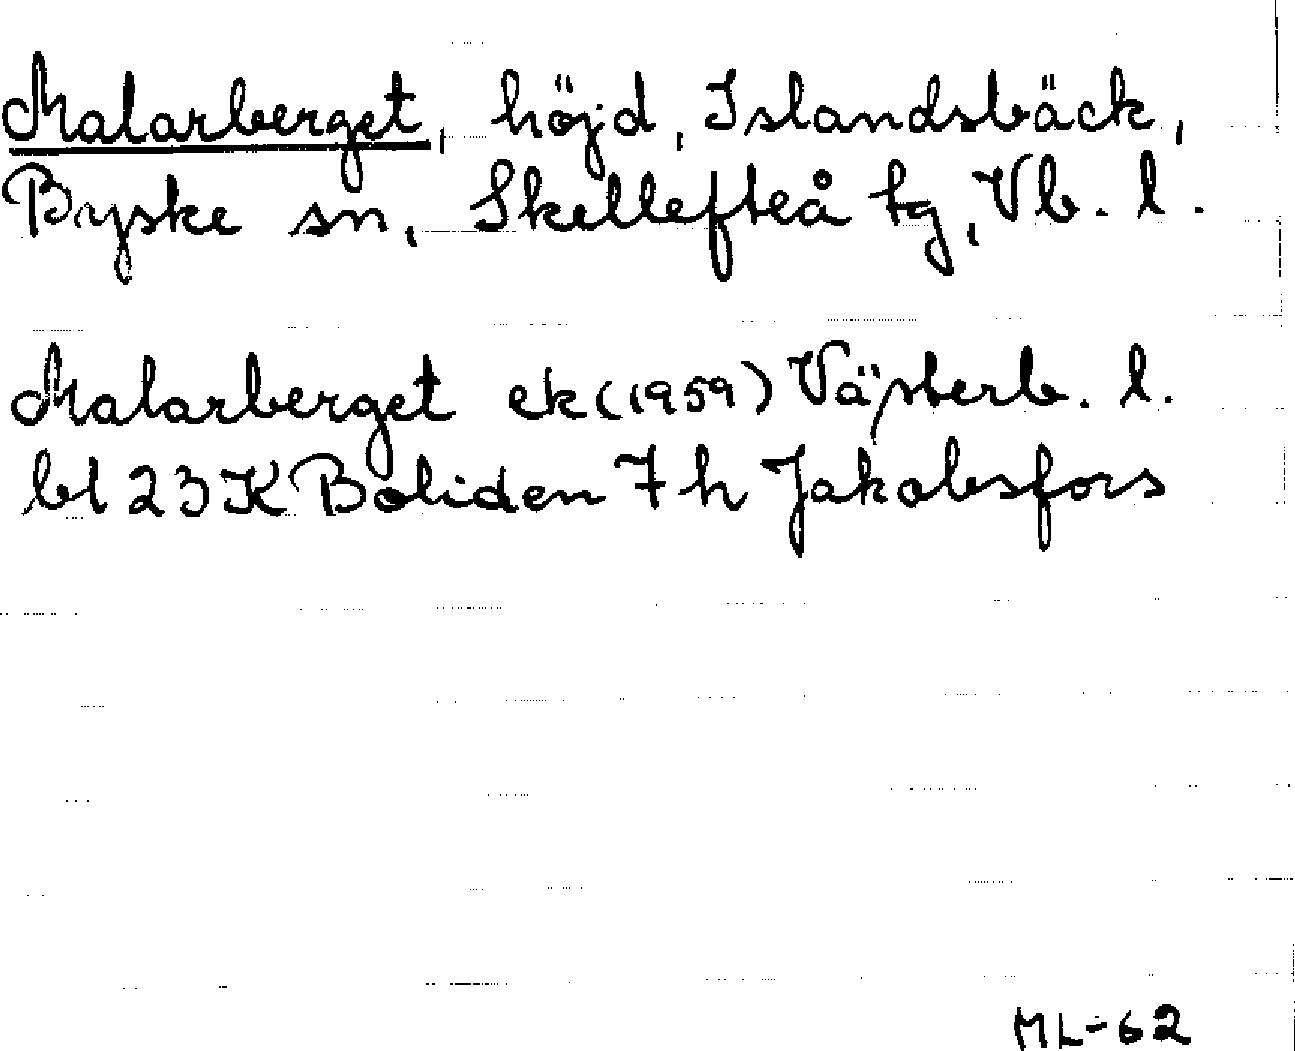 Malarberget, höjd, Islandsbäck,
Byske sn, Skellefteå tg, Vb. l.
Malarberget ek (1959) Västerb. l.
bl 23 K Boliden 7 h Jakobsfors
ML-62